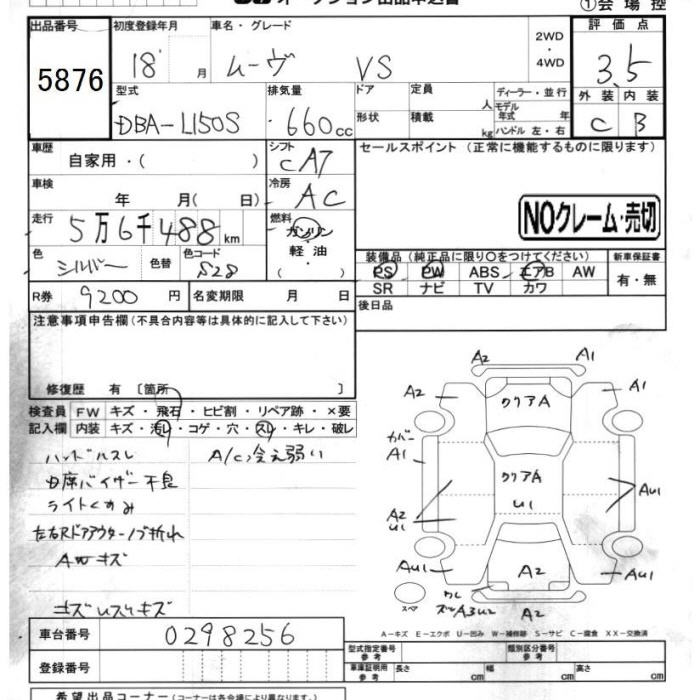 オークション出品申込書
①会場控
出品番号 5876
初度登録年月 18 月
車名・グレード ムーヴ VS
2WD・4WD
評価点 3.5
外装 C 内装 B
型式 DBA-L150S
排気量 660cc
ドア 形状
定員 人
積載 kg
ディーラー・並行
モデル年式 年
ハンドル 左・右
車歴 自家用・( )
シフト CA7
セールスポイント (正常に機能するものに限ります)
NOクレーム・売切
車検 年 月( 日)
冷房 AC
走行 5万6千488km
燃料 ガソリン 軽油
色 シルバー 色替
色コード S28
装備品 (純正品に限り○をつけてください)
新車保証書
PS PW ABS エアB AW 有・無
SR ナビ TV カワ
R券 9200円
名変期限 月 日
後日品
注意事項申告欄(不具合内容等は具体的に記入して下さい)
修復歴 有 〔箇所 〕
検査員記入欄
FW キズ・飛石・ヒビ割・リペア跡・×要
内装 キズ・汚レ・コゲ・穴・スレ・キレ・破レ
ハンドルスレ A/C冷え弱い
内席バイザー不良
ライトくもみ
左右Rドアアウターノブ折れ
AWキズ
A2 A1
A2 クリアA A1
カバー A1
クリアA
U1
A2 U1
AU1
AU1 A2 AU1
A3U2 A2
スペア
A-キズ E-エクボ U-凹み W-補修跡 S-サビ C-腐食 XX-交換済
車台番号 0298256
型式指定番号 参考
類別区分番号 参考
登録番号
車車証明用 参考 長さ cm 幅 cm 高さ cm
希望出品コーナー(コーナーは各会場により異なります。)